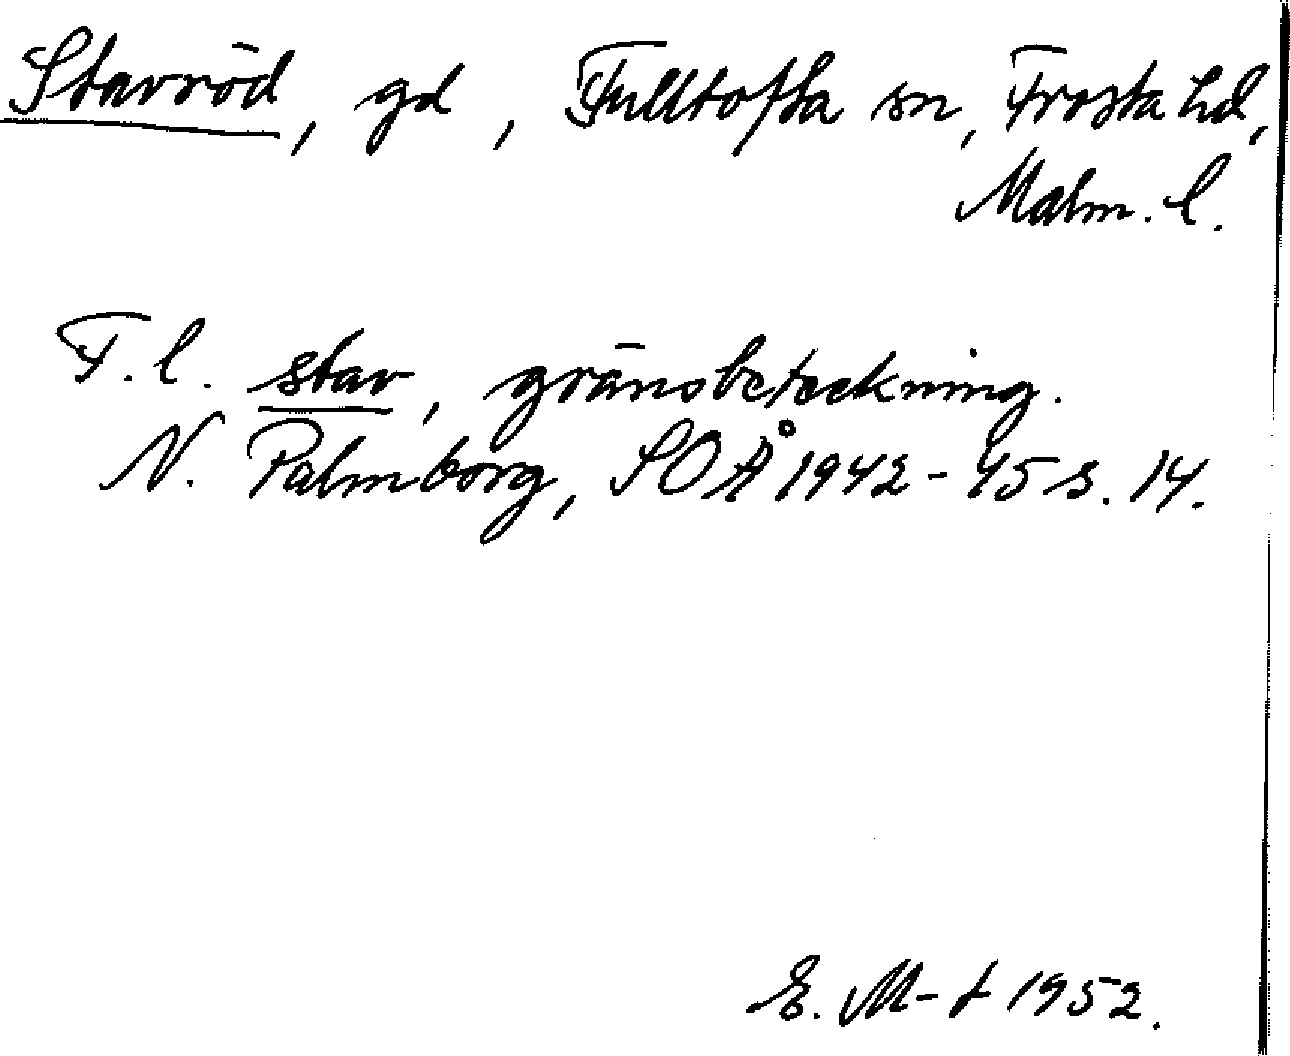 Stavröd, gd, Fulltofta sn, Frosta hd,
Malm. l.
F. l. stav, gränsbeteckning.
N. Palmborg, SOÅ 1942-45 s. 14.
E. M-t 1952.